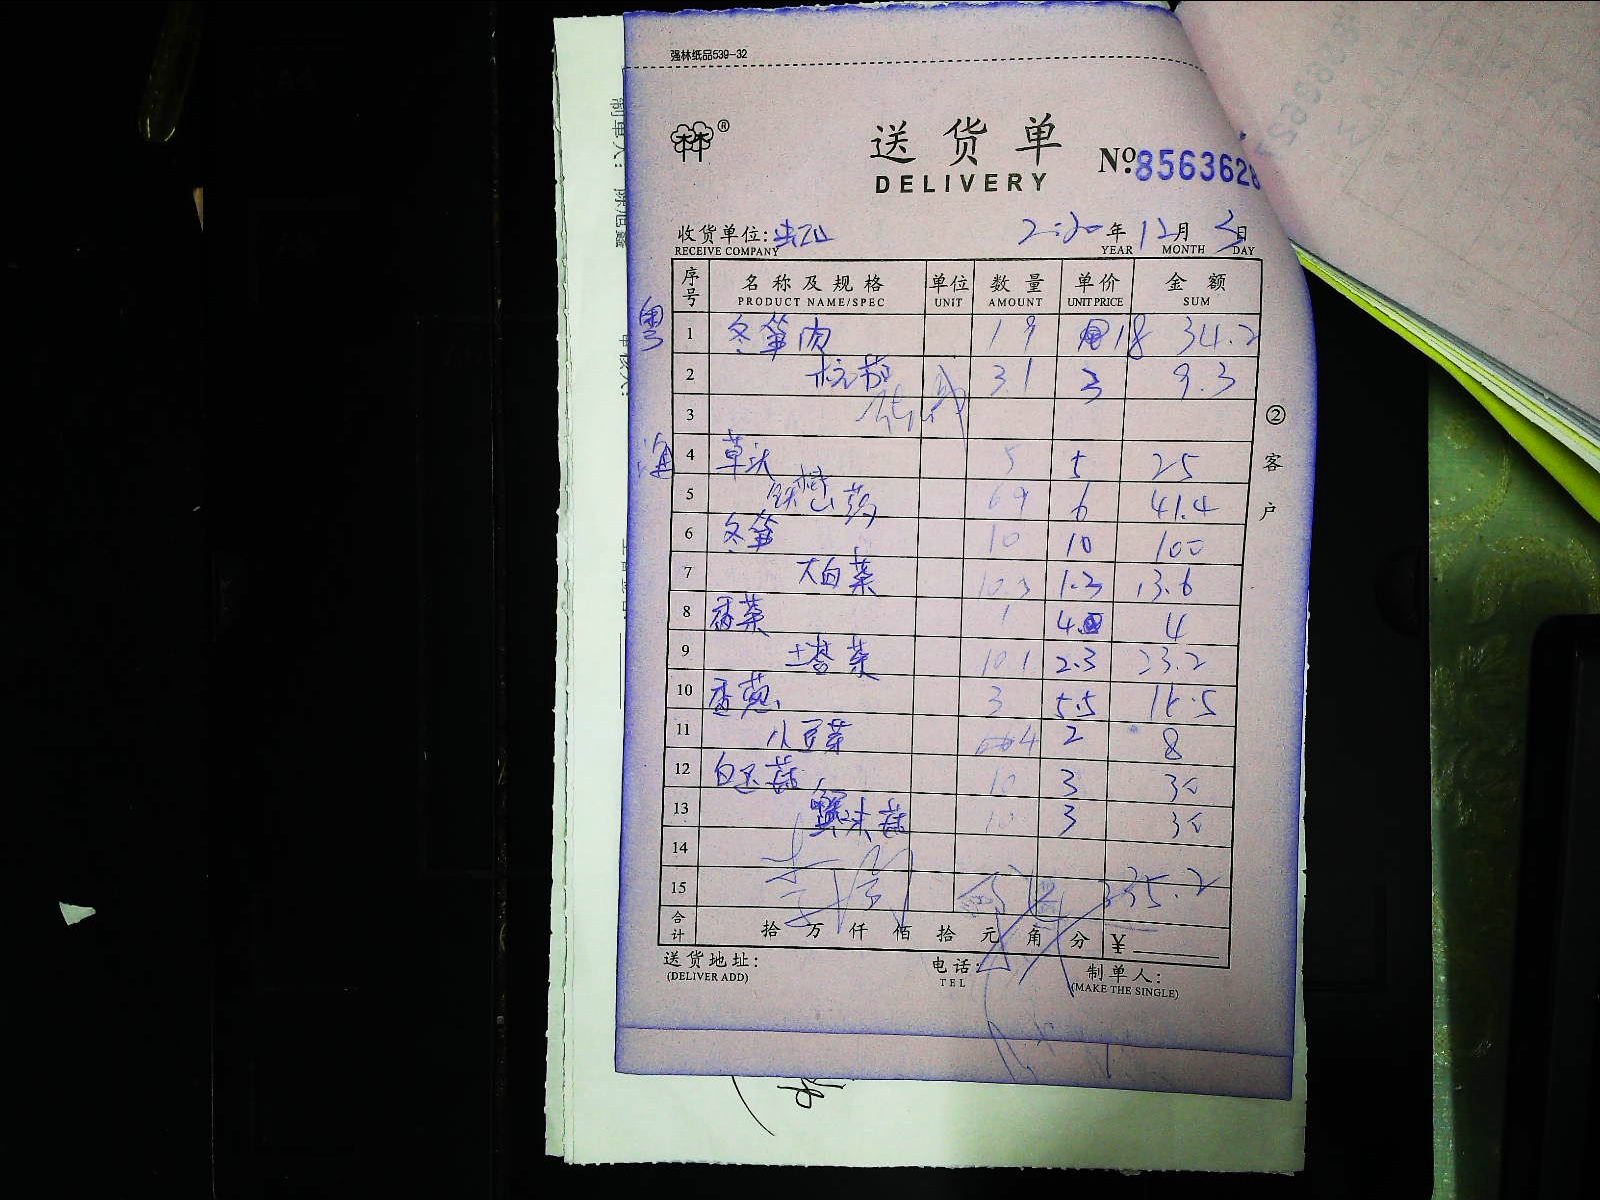 强林纸品539-32
送货单
DELIVERY
No. 8563628
收货单位: 2020年12月3日
RECEIVE COMPANY YEAR MONTH DAY
序号 名称及规格 单位 数量 单价 金额
PRODUCT NAME/SPEC UNIT AMOUNT UNIT PRICE SUM
粤 1 冬笋肉 1 9 18 34.2
2 杭茄 3.1 3 9.3
3
海 4 草头 5 5 25
5 铁棍山药 6 9 6 41.4
6 冬笋 10 10 100
7 大白菜 10 3 1.3 13.6
8 香菜 1 4 4
9 塔菜 10 1 2.3 23.2
10 香葱 3 5.5 16.5
11 小豆芽 4 2 8
12 白玉菇 10 3 30
13 蟹味菇 10 3 30
14
15 335.2
合计 拾万仟佰拾元角分 ¥
送货地址: 电话: 制单人:
(DELIVER ADD) TEL (MAKE THE SINGLE)
②客户
制单人:
审核人: